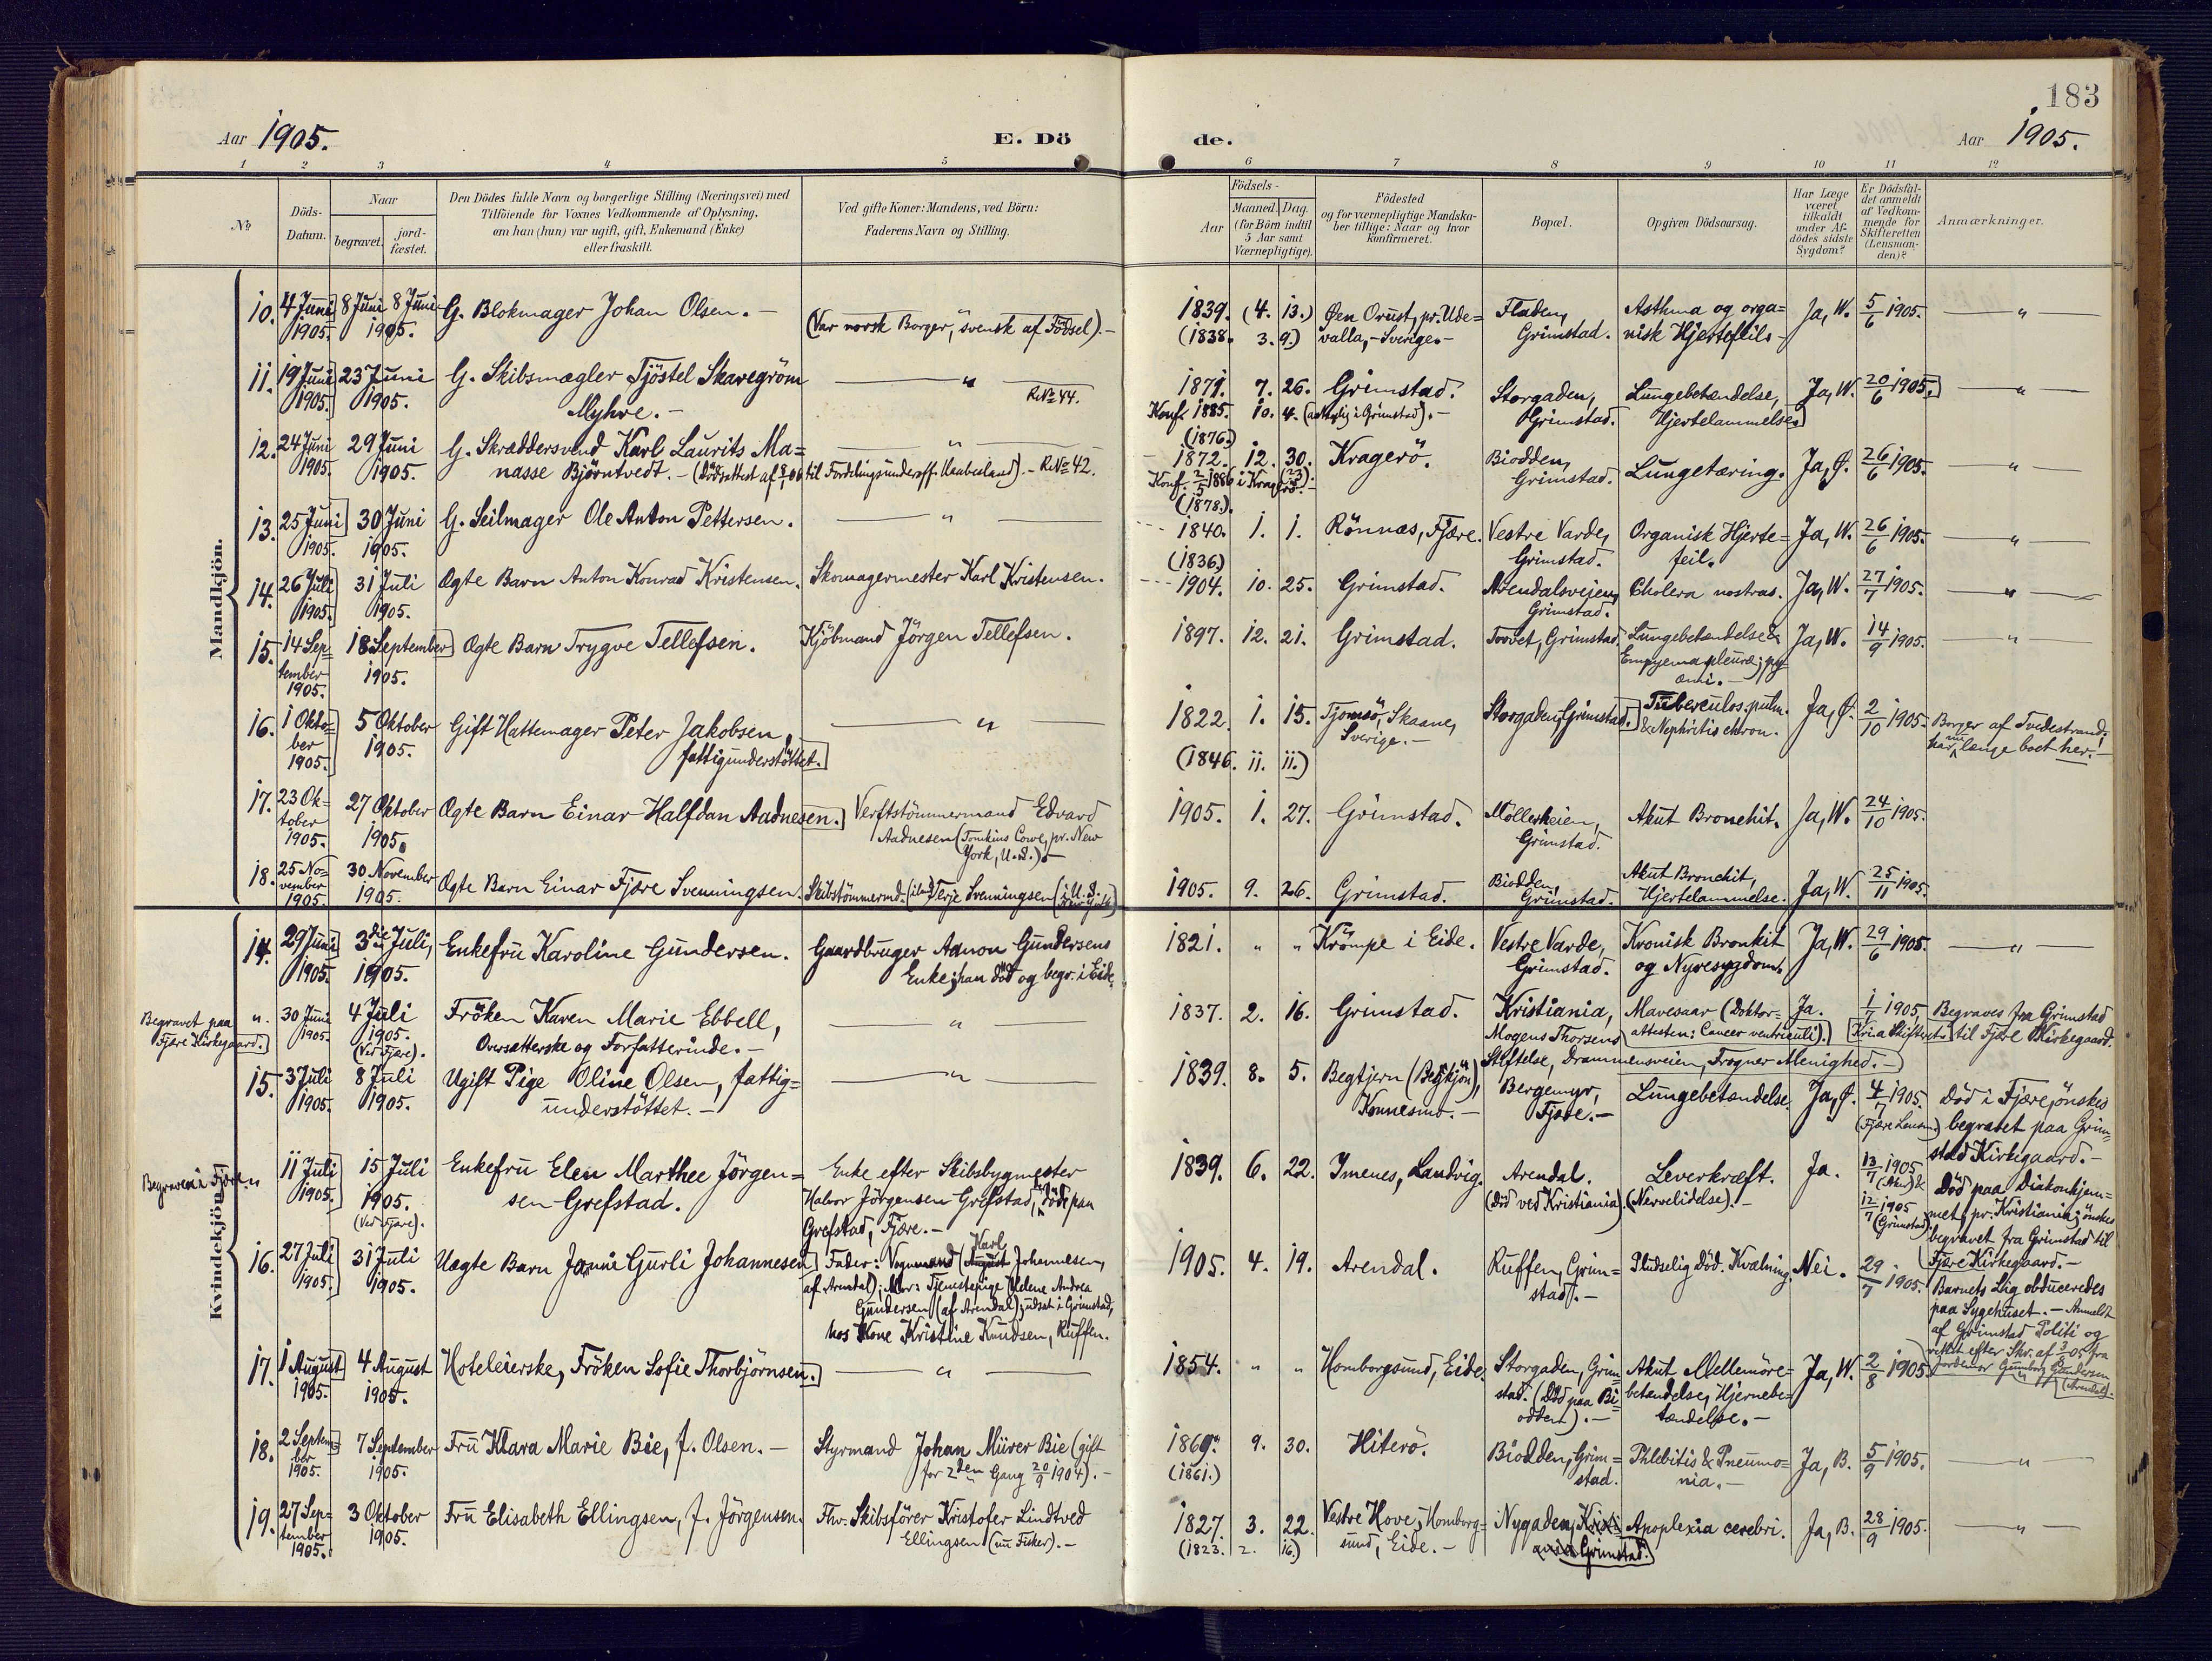 183
Aar 1905.
E. Dö
de.
Aar 1905.
1 2 3 4 5 6 7 8 9 10 11 12
No
Döds-
Datum.
Naar
begravet.
jord-
fæstet.
Den Dödes fulde Navn og borgerlige Stilling (Næringsvei) med
Tilföiende for Voxnes Vedkommende af Oplysning,
om han (hun) var ugift, gift, Enkemand (Enke)
eller fraskilt.
Ved gifte Koner: Mandens, ved Börn:
Faderens Navn og Stilling.
Födsels-
Aar
Maaned. Dag.
(for Börn indtil
5 Aar samt
Værnepligtige).
Födested
og for værnepligtige Mandska-
ber tillige: Naar og hvor
konfirmeret.
Bopæl.
Opgiven Dödsaarsag.
Har Læge
været
tilkaldt
under Af-
dödes sidste
Sygdom?
Er Dödsfal-
det anmeldt
af Vedkom-
mende for
Skifteretten
(Lensman-
den)?
Anmærkninger.
Mandkjön.
10. 4 Juni 8 Juni 8 Juni G. Blokmager Johan Olsen. – 1839. (4. 13.) Øen Orust, pr. Ude= Fladen, Asthma og orga= Ja, W. 5/6 1905. — " —
1905. 1905. (Var norsk Borger, svensk af Födsel). – (1838. 3. 9.) valla, – Sverige. – Grimstad. nisk Hjertefeils –
11. 19 Juni 23 Juni G. Skibsmægler Tjöstel Skaregröm — " — 1871. 7. 26. Grimstad. Storgaden, Lungebetændelse, Ja, W. 20/6 1905. — " —
1905. 1905. Myhve. – R.No 44. Konf. 1885. 10. 4. Grimstad). – Grimstad. Hjertelammelse.
(1876.)
12. 24 Juni 29 Juni G. Skræddersvend Karl Laurits Ma= — " — 1872. 12. 30. Kragerö. Biodden, Lungetæring. Ja, Ø. 26/6 1905. " —
1905. 1905. nasse Björntvedt. – (Dödsattest af til ) – R.No 42. Konf. 2/5 1886 i Kragerö. – (23). Grimstad.
(1878.)
13. 25 Juni 30 Juni G. Seilmager Ole Anton Pettersen. — " — 1840. 1. 1. Rönnæs, Fjære. Vestre Varde, Organisk Hjerte= Ja, W. 26/6 1905. — " —
1905. 1905. (1836.) Grimstad. feil.
14. 26 Juli 31 Juli Ægte Barn Anton Konrad Kristensen. Skomagermester Karl Kristensen. 1904. 10. 25. Grimstad. Arendalsveien, Cholera nostras. Ja, W. 27/7 1905. — " —
1905. 1905. Grimstad.
15. 14 Sep= 18 September Ægte Barn Trygve Tellefsen. Kjöbmand Jörgen Tellefsen. 1897. 12. 21. Grimstad. Torvet, Grimstad. Lungebetændelse & Ja, W. 14/9 1905. — " —
tember 1905. Empyema pleuræ; py=
1905. æmi. –
16. 1 Okto= 5 Oktober Gift Hattemager Peter Jakobsen, — " — 1822. 1. 15. Tjomsö, Skaane, Storgaden, Grimstad. Tuberculos. pulm. Ja, Ø. 2/10 1905. Borger af Tvedestrand;
ber 1905. fattigunderstöttet. Sverige. – & Nephritis chron. har nu længe boet her. –
1905. (1846. 11. 11.)
17. 23 Ok= 27 Oktober Ægte Barn Einar Halfdan Aadnesen. Verftstömmermand Edvard 1905. 1. 27. Grimstad. Möllerheien, Akut Bronchit. Ja, W. 24/10 1905.
tober 1905. Aadnesen (Tomkins Cowe, pr. New Grimstad.
1905. York, U.S.). –
18. 25 No= 30 November Ægte Barn Einar Fjære Svenningsen. Skibstömmermd. Terje Svenningsen (i U.S. 1905. 9. 26. Grimstad. Biodden, Akut Bronchit, Ja, W. 25/11 1905.
vember 1905. New York) Grimstad. Hjertelammelse.
1905.
Kvindekjön.
14. 29 Juni 3die Juli, Enkefru Karoline Gundersen. Gaardbruger Aanon Gundersens 1821. " " Krömpe i Eide. Vestre Varde, Kronisk Bronkit Ja, W. 29/6 1905. — " —
1905. 1905. Enke; han död og begr. i Eide. Grimstad. og Nyresygdom.
Begravet paa ". 30 Juni 4 Juli Fröken Karen Marie Ebbell, — " — 1837. 2. 16. Grimstad. Kristiania, Mavesaar (Doktor= Ja. 1/7 1905, Begraves fra Grimstad
Fjære Kirkegaard. 1905. 1905. Oversætterske og Forfatterinde. – Mogens Thorsens attesten: Cancer ventriculi). Kria Skifteret. til Fjære Kirkegaard.
(Ved Fjære). Stiftelse, Drammensveien, Frogner Menighed. –
15. 3 Juli 8 Juli Ugift Pige Oline Olsen, fattig= — " — 1839. 8. 5. Begtjern (Begtjön), Bergemyr, Lungebetændelse. Ja, Ø. 4/7 1905. Död i Fjære, önskes
1905. 1905. understöttet. – Konnesmo. – Fjære. – (Fjære Lensm.) begravet paa Grim=
stad Kirkegaard. –
Begraven i Fjære. " 11 Juli 15 Juli Enkefru Elen Marthee Jörgen= Enke efter Skibsbygmester 1839. 6. 22. Imenes, Landvig. Arendal. Leverkræft. Ja. 13/7 1905 Död paa Diakonhjem=
1905. 1905. sen-Grefstad. Halvor Jörgensen Grefstad, döde paa (Död ved Kristiania). (Nervelidelse). – & 12/7 1905 met, pr. Kristiania; önskes
(Ved Fjære). Grefstad, Fjære. – (Grimstad). begravet fra Grimstad til
Fjære Kirkegaard. –
16. 27 Juli 31 Juli Uægte Barn Jenni Gurli Johannesen Fader: Vognmand (August Karl Johannesen, 1905. 4. 19. Arendal. Ruffen, Grim= Pludselig Död. Kvælning. Nei. 29/7 1905. Barnets Lig obduceredes
1905. 1905. af Arendal); Mor: Tjenestepige Helene Andrea stad. – paa Sygehuset. – Anmeldt
Gundersen (af Arendal); udsat i Grimstad, af Grimstad Politi og
hos Kone Kristine Knudsen, Ruffen. efter Skr. af fra
Jordemor Gunborg Gundersen
(Arendal).
17. 1 August 4 August Hoteleierske, Fröken Sofie Thorbjörnsen. — " — 1854. " " Homborgsund, Eide. Storgaden, Grim= Akut Mellemöre= Ja, W. 2/8 1905.
1905. 1905. stad. (Död paa Bi= betændelse, Hjernebe=
odden). – tændelse. –
18. 2 Septem= 7 September Fru Klara Marie Bie, f. Olsen. – Styrmand Johan Mürer Bie (gift 1869. 9. 30. Hiterö. Biodden, Grim= Phlebitis & Pneumo= Ja, B. 5/9 1905. — " —
ber 1905. for 2den Gang 20/9 1904). – (1861.) stad. nia. –
1905.
19. 27 Sep= 3 Oktober Fru Elisabeth Ellingsen, f. Jörgensen. Fhv. Skibsförer Kristofer Lindtved 1827. 3. 22. Vestre Hove, Homborg= Nygaden, Kristi Apoplexia cerebri. Ja, B. 28/9 1905. — " —
tember 1905. Ellingsen (nu Fisker). – (1823. 2. 16.) sund, Eide. – ania Grimstad.
1905.